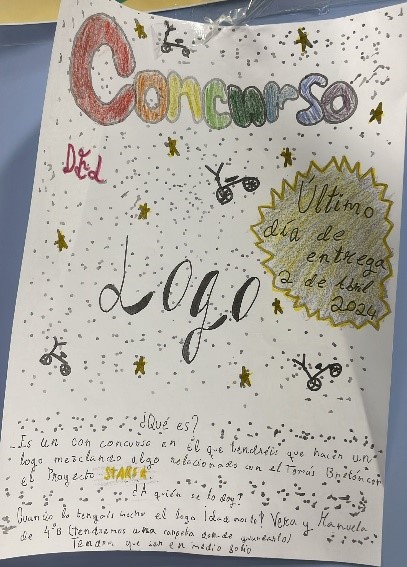 Concurso
Del
Último
día de
entrega
2 de Abril
2024
Logo
¿Qué es?
Es un con concurso en el que tendréis que hacer un
logo mezclando algo relacionado con el Tomás Bretón con
el Proyecto STARS
¿A quién se lo doy?
Cuando lo tengáis hecho el logo ¡dádnoslo! Vera y Manuela
de 4ºB (tendremos una carpeta donde guardarlo)
Tendrá que ser en medio folio